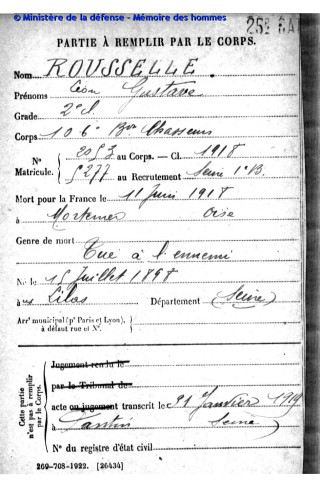 © Ministère de la défense - Mémoire des hommes
PARTIE À REMPLIR PAR LE CORPS.
Nom ROUSSELLE
Prénoms Léon Gustave
Grade 2e S.
Corps 106e Bon Chasseurs
N° Matricule. 2053 au Corps. — Cl. 1918
5277 au Recrutement Seine 1er B.
Mort pour la France le 11 Juin 1918
à Mortemer Oise
Genre de mort
Tué à l'ennemi
Né le 15 Juillet 1898
aux Lilas Département (Seine)
Arrt municipal (pr Paris et Lyon),
à défaut rue et N°.
Cette partie n'est pas à remplir par le Corps.
Jugement rendu le
par le Tribunal de
acte ou jugement transcrit le 31 Janvier 1919
à Pantin Seine
N° du registre d'état civil
269-708-1922. [26434]